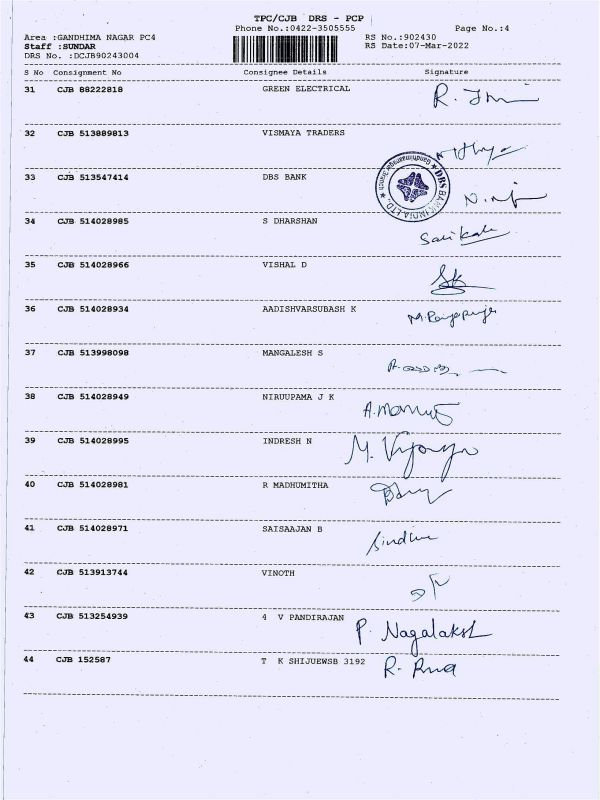 TPC/CJB DRS - PCP
Phone No.:0422-3505555 Page No.:4
Area :GANDHIMA NAGAR PC4 RS No.:902430
Staff :SUNDAR RS Date:07-Mar-2022
DRS No. :DCJB90243004
S No Consignment No Consignee Details Signature
31 CJB 88222818 GREEN ELECTRICAL
32 CJB 513889813 VISMAYA TRADERS
33 CJB 513547414 DBS BANK
DBS BANK INDIA LTD.
34 CJB 514028985 S DHARSHAN
35 CJB 514028966 VISHAL D
36 CJB 514028934 AADISHVARSUBASH K
37 CJB 513998098 MANGALESH S
38 CJB 514028949 NIRUUPAMA J K
39 CJB 514028995 INDRESH N
40 CJB 514028981 R MADHUMITHA
41 CJB 514028971 SAISAAJAN B Sindhu
42 CJB 513913744 VINOTH
43 CJB 513254939 4 V PANDIRAJAN P. Nagalaksh
44 CJB 152587 T K SHIJUEWSB 3192